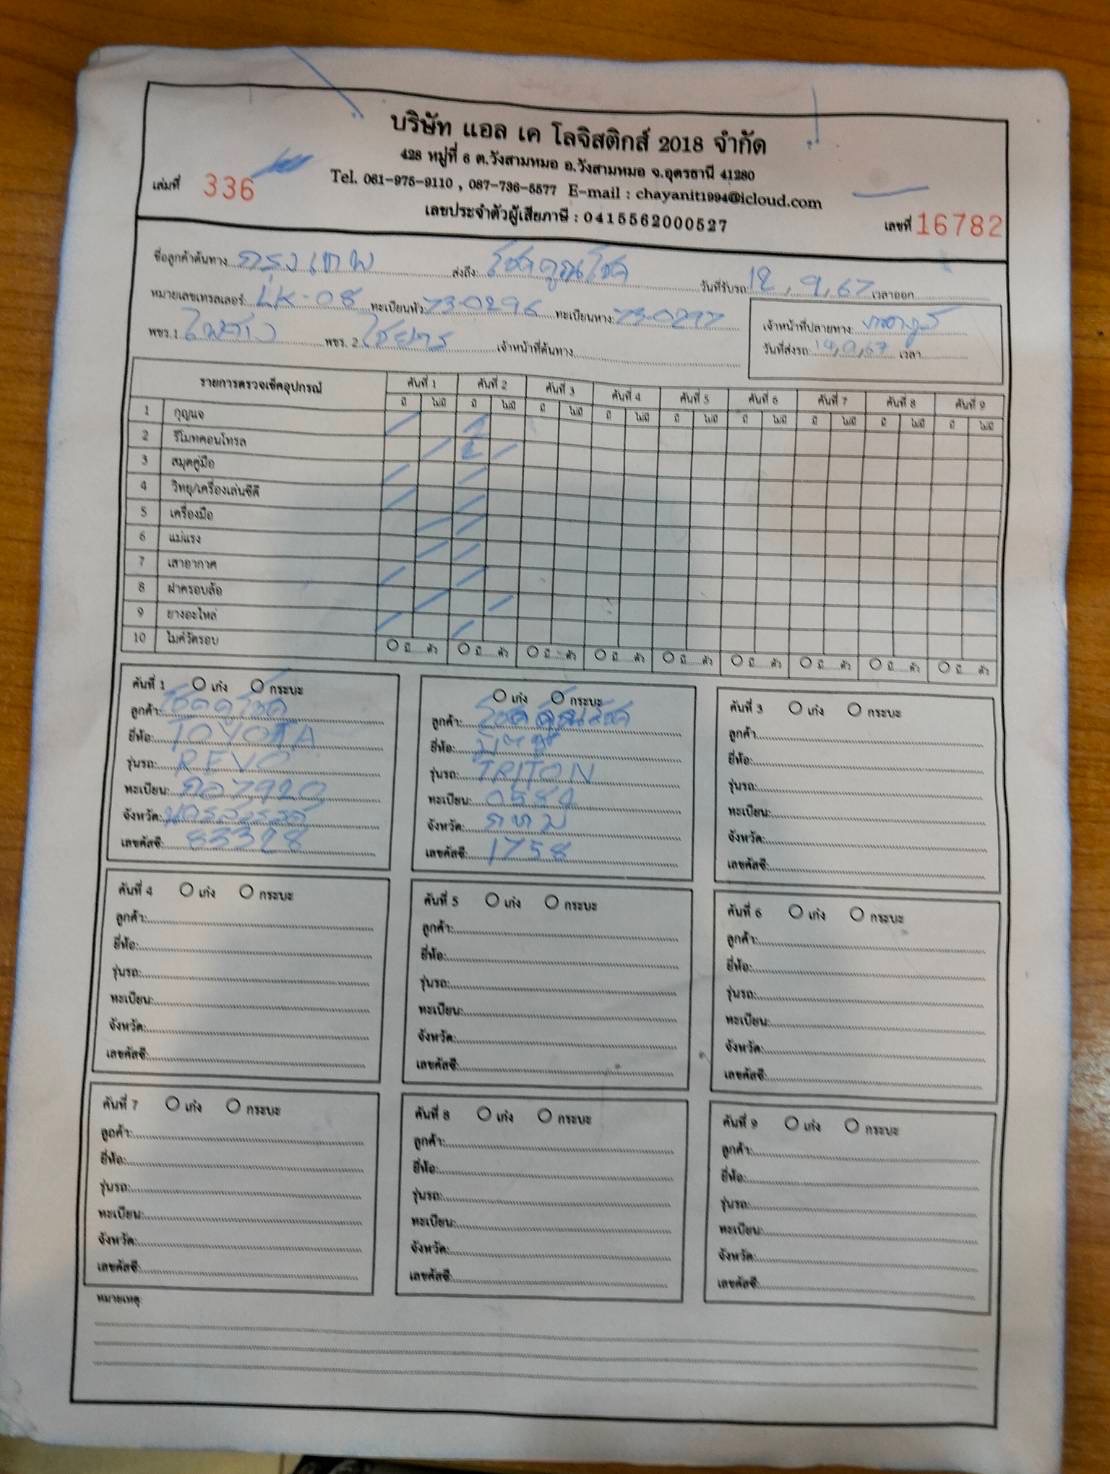 บริษัท แอล เค โลจิสติกส์ 2018 จำกัด
428 หมู่ที่ 6 ต.วังสามหมอ อ.วังสามหมอ จ.อุดรธานี 41280
Tel. 061-975-9110 , 087-736-5577 E-mail : chayanit1994@icloud.com
เล่มที่ 336 เลขประจำตัวผู้เสียภาษี : 0415562000527 เลขที่ 16782
ชื่อลูกค้าต้นทาง กรุงเทพ ส่งถึง โชคคูณโชค วันที่รับรถ 12, 9, 67 เวลาออก
หมายเลขเทรลเลอร์ LK-08 ทะเบียนหัว 73-0296 ทะเบียนหาง 73-0297
เจ้าหน้าที่ปลายทาง
พขร. 1 พขร. 2 เจ้าหน้าที่ต้นทาง
วันที่ส่งรถ เวลา
รายการตรวจเช็คอุปกรณ์ คันที่ 1 คันที่ 2 คันที่ 3 คันที่ 4 คันที่ 5 คันที่ 6 คันที่ 7 คันที่ 8 คันที่ 9
มี ไม่มี มี ไม่มี มี ไม่มี มี ไม่มี มี ไม่มี มี ไม่มี มี ไม่มี มี ไม่มี มี ไม่มี
1 กุญแจ
2 รีโมทคอนโทรล
3 สมุดคู่มือ
4 วิทยุ/เครื่องเล่นซีดี
5 เครื่องมือ
6 แม่แรง
7 เสาอากาศ
8 ฝาครอบล้อ
9 ยางอะไหล่
10 ไมค์วัดรอบ
คันที่ 1 เก๋ง กระบะ
ลูกค้า:
ยี่ห้อ: TOYOTA
รุ่นรถ: REVO
ทะเบียน: 7920
จังหวัด: นครสวรรค์
เลขคัสซี: 83328
เก๋ง กระบะ
ลูกค้า: โชคคูณโชค
ยี่ห้อ:
รุ่นรถ: TRITON
ทะเบียน:
จังหวัด: กทม
เลขคัสซี: 1758
คันที่ 3 เก๋ง กระบะ
ลูกค้า
ยี่ห้อ:
รุ่นรถ:
ทะเบียน:
จังหวัด:
เลขคัสซี:
คันที่ 4 เก๋ง กระบะ
ลูกค้า:
ยี่ห้อ:
รุ่นรถ:
ทะเบียน:
จังหวัด:
เลขคัสซี:
คันที่ 5 เก๋ง กระบะ
ลูกค้า:
ยี่ห้อ:
รุ่นรถ:
ทะเบียน:
จังหวัด:
เลขคัสซี:
คันที่ 6 เก๋ง กระบะ
ลูกค้า:
ยี่ห้อ:
รุ่นรถ:
ทะเบียน:
จังหวัด:
เลขคัสซี:
คันที่ 7 เก๋ง กระบะ
ลูกค้า:
ยี่ห้อ:
รุ่นรถ:
ทะเบียน:
จังหวัด:
เลขคัสซี:
คันที่ 8 เก๋ง กระบะ
ลูกค้า:
ยี่ห้อ:
รุ่นรถ:
ทะเบียน:
จังหวัด:
เลขคัสซี:
คันที่ 9 เก๋ง กระบะ
ลูกค้า:
ยี่ห้อ:
รุ่นรถ:
ทะเบียน:
จังหวัด:
เลขคัสซี:
หมายเหตุ